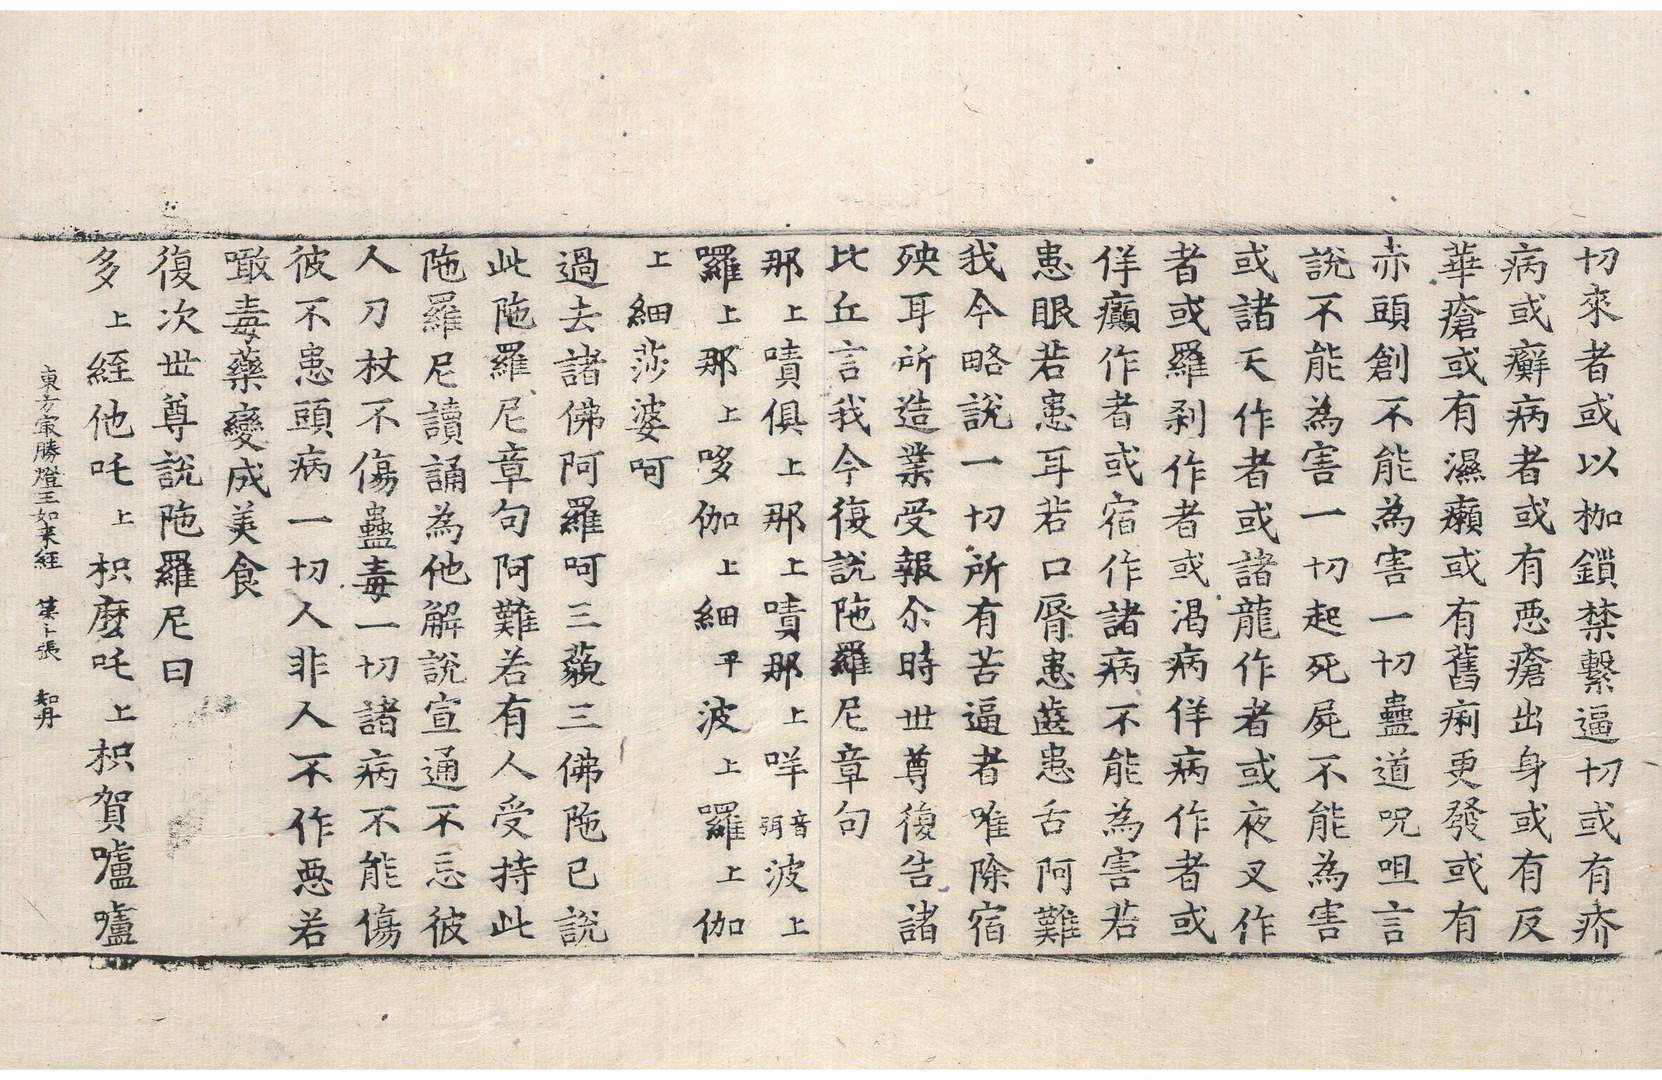 切來者或以枷鎖禁繫逼切或有疥
病或癬病者或有惡瘡出身或有反
華瘡或有濕癩或有舊痢更發或有
赤頭創不能為害一切蠱道呪咀言
說不能為害一切起死屍不能為害
或諸天作者或諸龍作者或夜叉作
者或羅剎作者或渴病佯病作者或
佯癲作者或宿作諸病不能為害若
患眼若患耳若口脣患齒患舌阿難
我今略說一切所有苦逼者唯除宿
殃耳所造業受報尒時世尊復告諸
比丘言我今復說陁羅尼章句
那上嘖俱上那上嘖那上咩音弭波上
囉上那上哆伽上細平波上囉上伽
上細莎婆呵
過去諸佛阿羅呵三藐三佛陁已說
此陁羅尼章句阿難若有人受持此
陁羅尼讀誦為他解說宣通不忘彼
人刀杖不傷蠱毒一切諸病不能傷
彼不患頭病一切人非人不作惡若
噉毒藥變成美食
復次世尊說陁羅尼曰
多上絰他吒上枳麼吒上枳賀嚧嚧
東方㝡勝燈王如来經 苐卜張 知丹